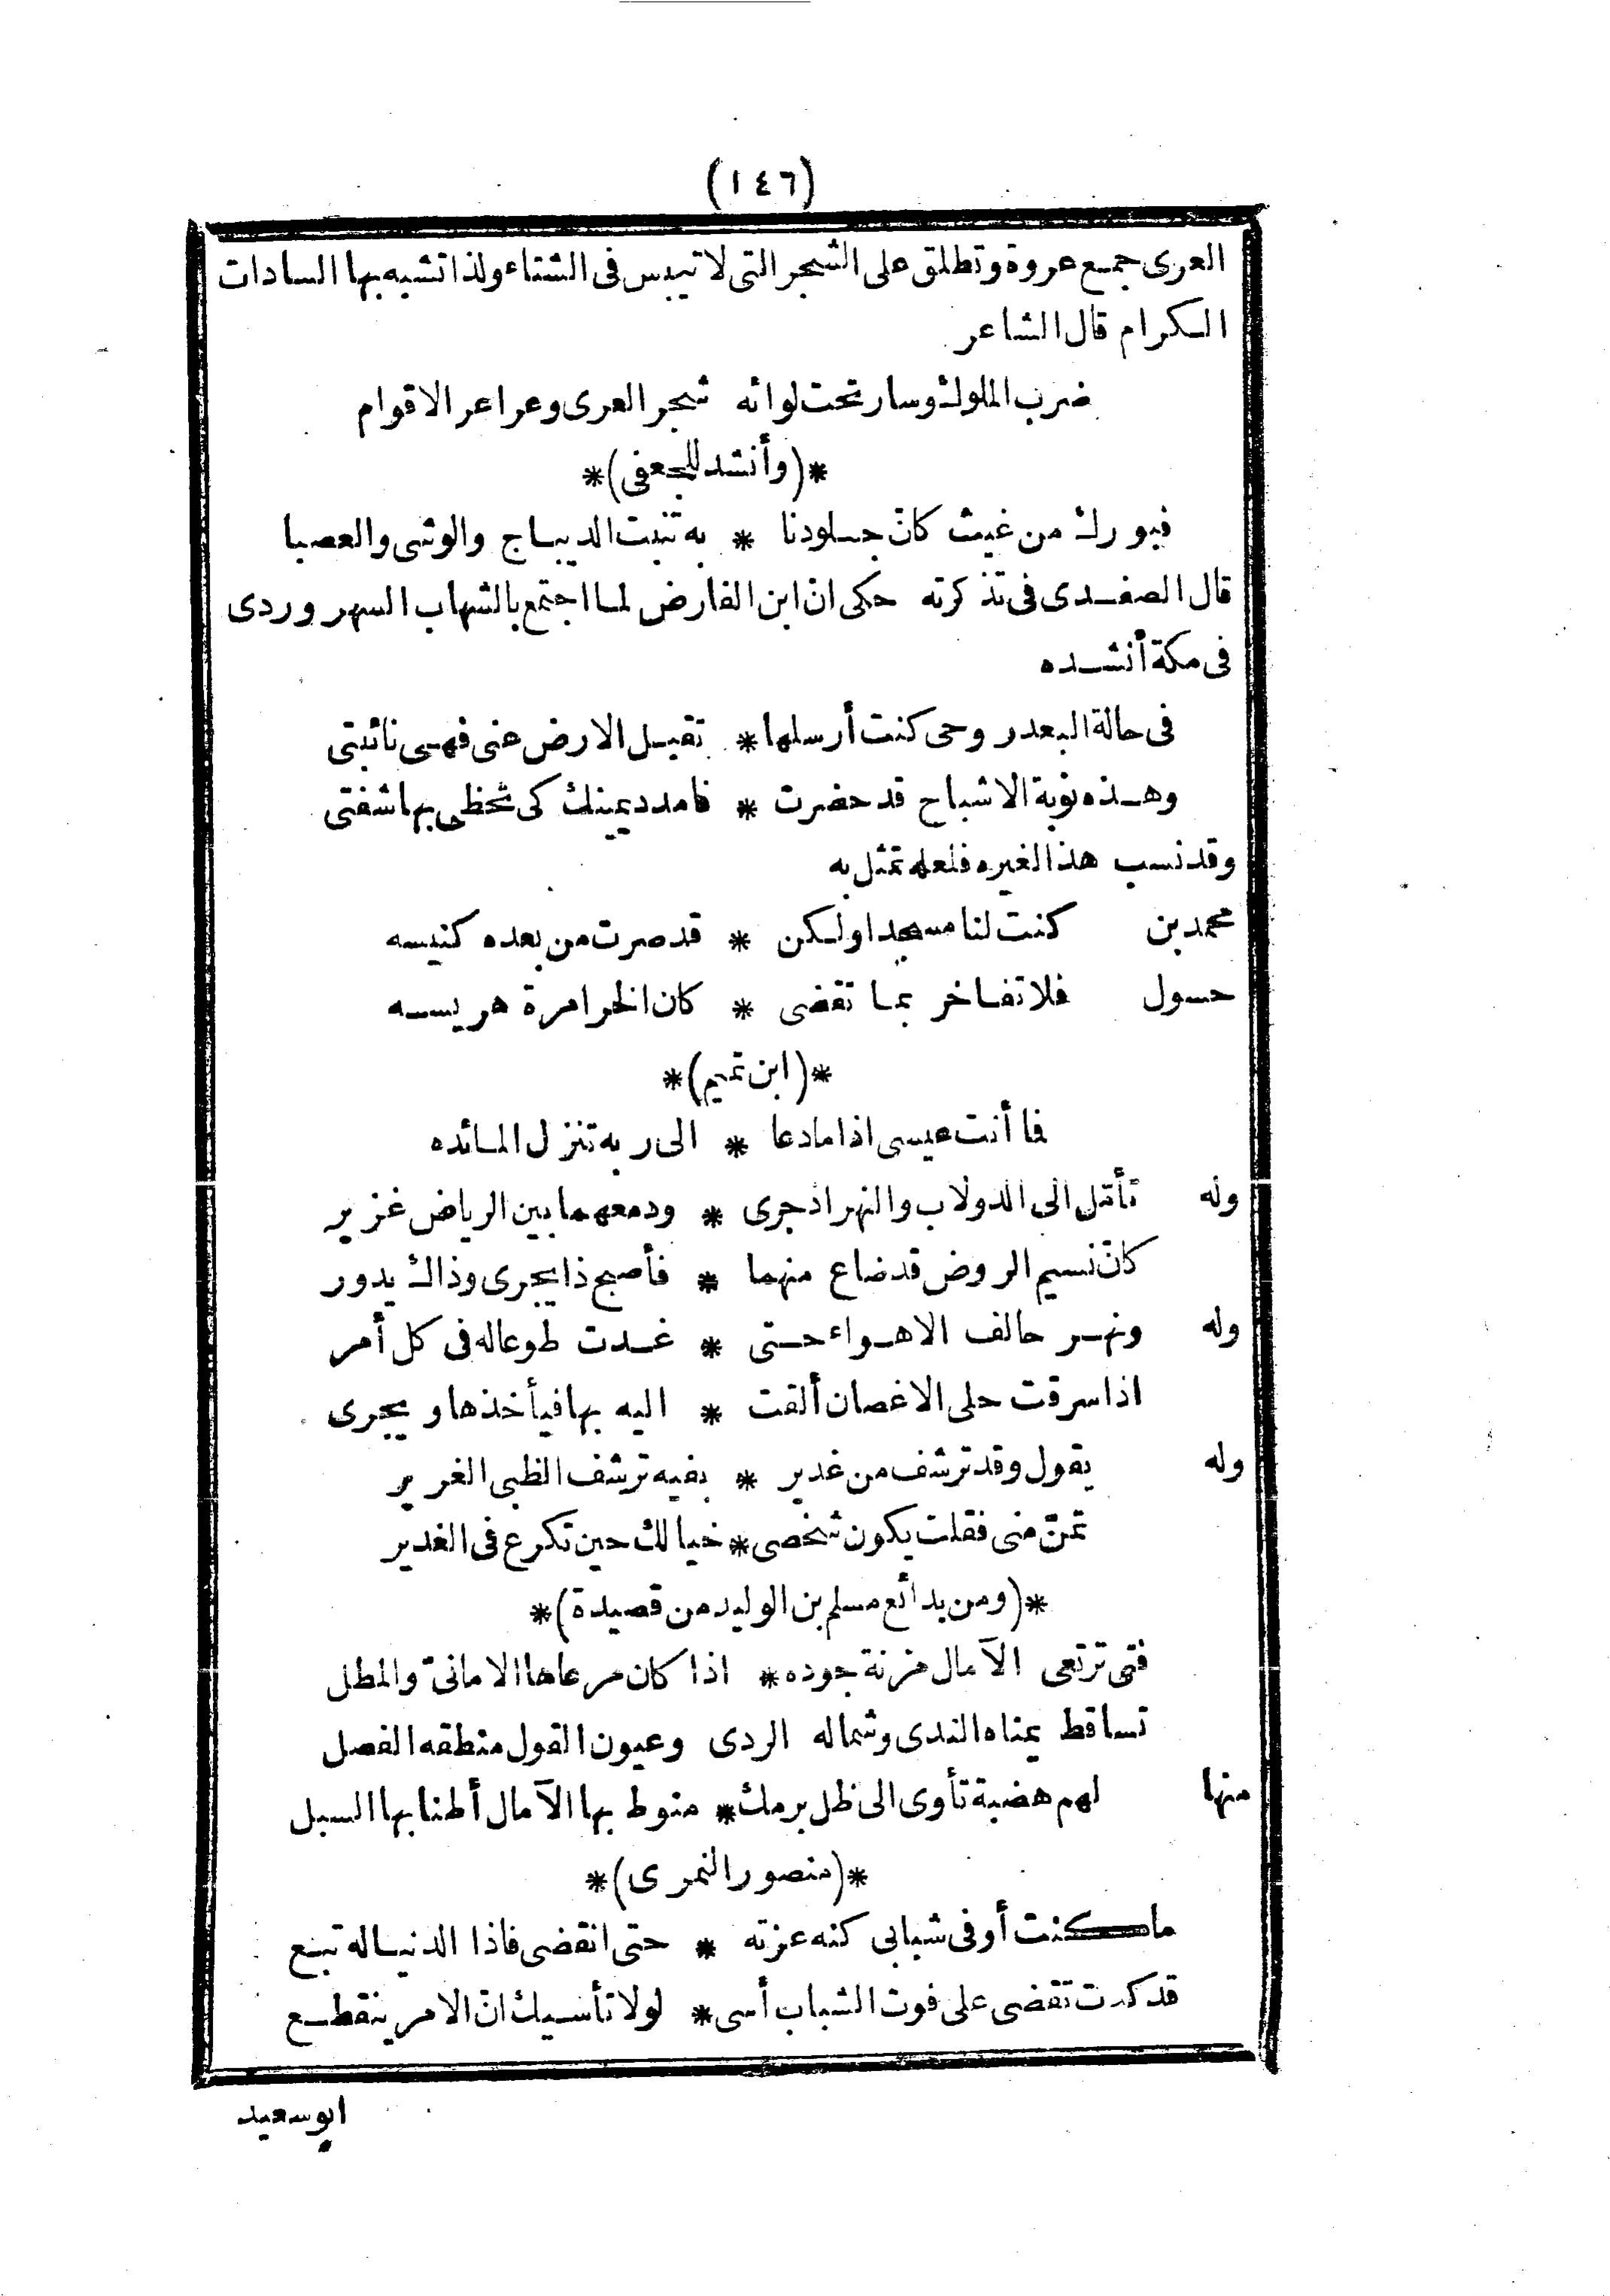 (١٤٦)
العرى جمع عروة وتطلق على الشجر التى لا تيبس فى الشتاء ولذا تشبه بها السادات
الكرام قال الشاعر
ضرب الملوك وسار تحت لوائه شجر العرى وعراعر الاقوام
*(وأنشد للجعفى)*
فبورك من غيث كانّ جلودنا * به تنبت الديباج والوشى والعصبا
قال الصفدى فى تذكرته حكى ان ابن الفارض لما اجتمع بالشهاب السهروردى
فى مكة أنشده
فى حالة البعد روحى كنت أرسلها * تقبل الارض عنى فهى نائبتى
وهذه نوبة الاشباح قد حضرت * فامدد يمينك كى تحظى بها شفتى
وقد نسب هذا لغيره فلعله تمثل به
محمد بن كنت لنا مسجدا ولكن * قد صرت من بعده كنيسه
حسول فلا تفاخر بما تقضى * كان الخرا مرة هريسه
*(ابن تميم)*
فا أنت عيسى اذا ما دعا * الى ربه تنزل المائده
وله تأمّل الى الدولاب والنهر اذ جرى * ودمعهما بين الرياض غزير
كانّ نسيم الروض قد ضاع منهما * فأصبح ذا يجرى وذاك يدور
وله ونهر حالف الاهواء حتى * غدت طوعا له فى كل أمر
اذا سرقت حلى الاغصان ألقت * اليه بها فيأخذها ويجرى
وله يقول وقد ترشف من غدير * بفيه ترشف الظبى الغرير
تمنّ منى فقلت يكون شخصى * خيالك حين تكرع فى الغدير
*(ومن بدائع مسلم بن الوليد من قصيدة)*
فتى ترتعى الآمال مزنة جوده * اذا كان مرعاها الامانىّ والمطل
تساقط يمناه الندى وشماله الردى وعيون القول منطقه الفصل
منها لهم هضبة تأوى الى ظل برمك * منوط بها الآمال أطنابها السبل
*(منصور النمرى)*
ما كنت أوفى شبابى كنه عزته * حتى انقضى فاذا الدنيا له تبع
قد كدت تقضى على فوت الشباب أسى * لولا تأسيك انّ الامر ينقطع
ابو سعيد